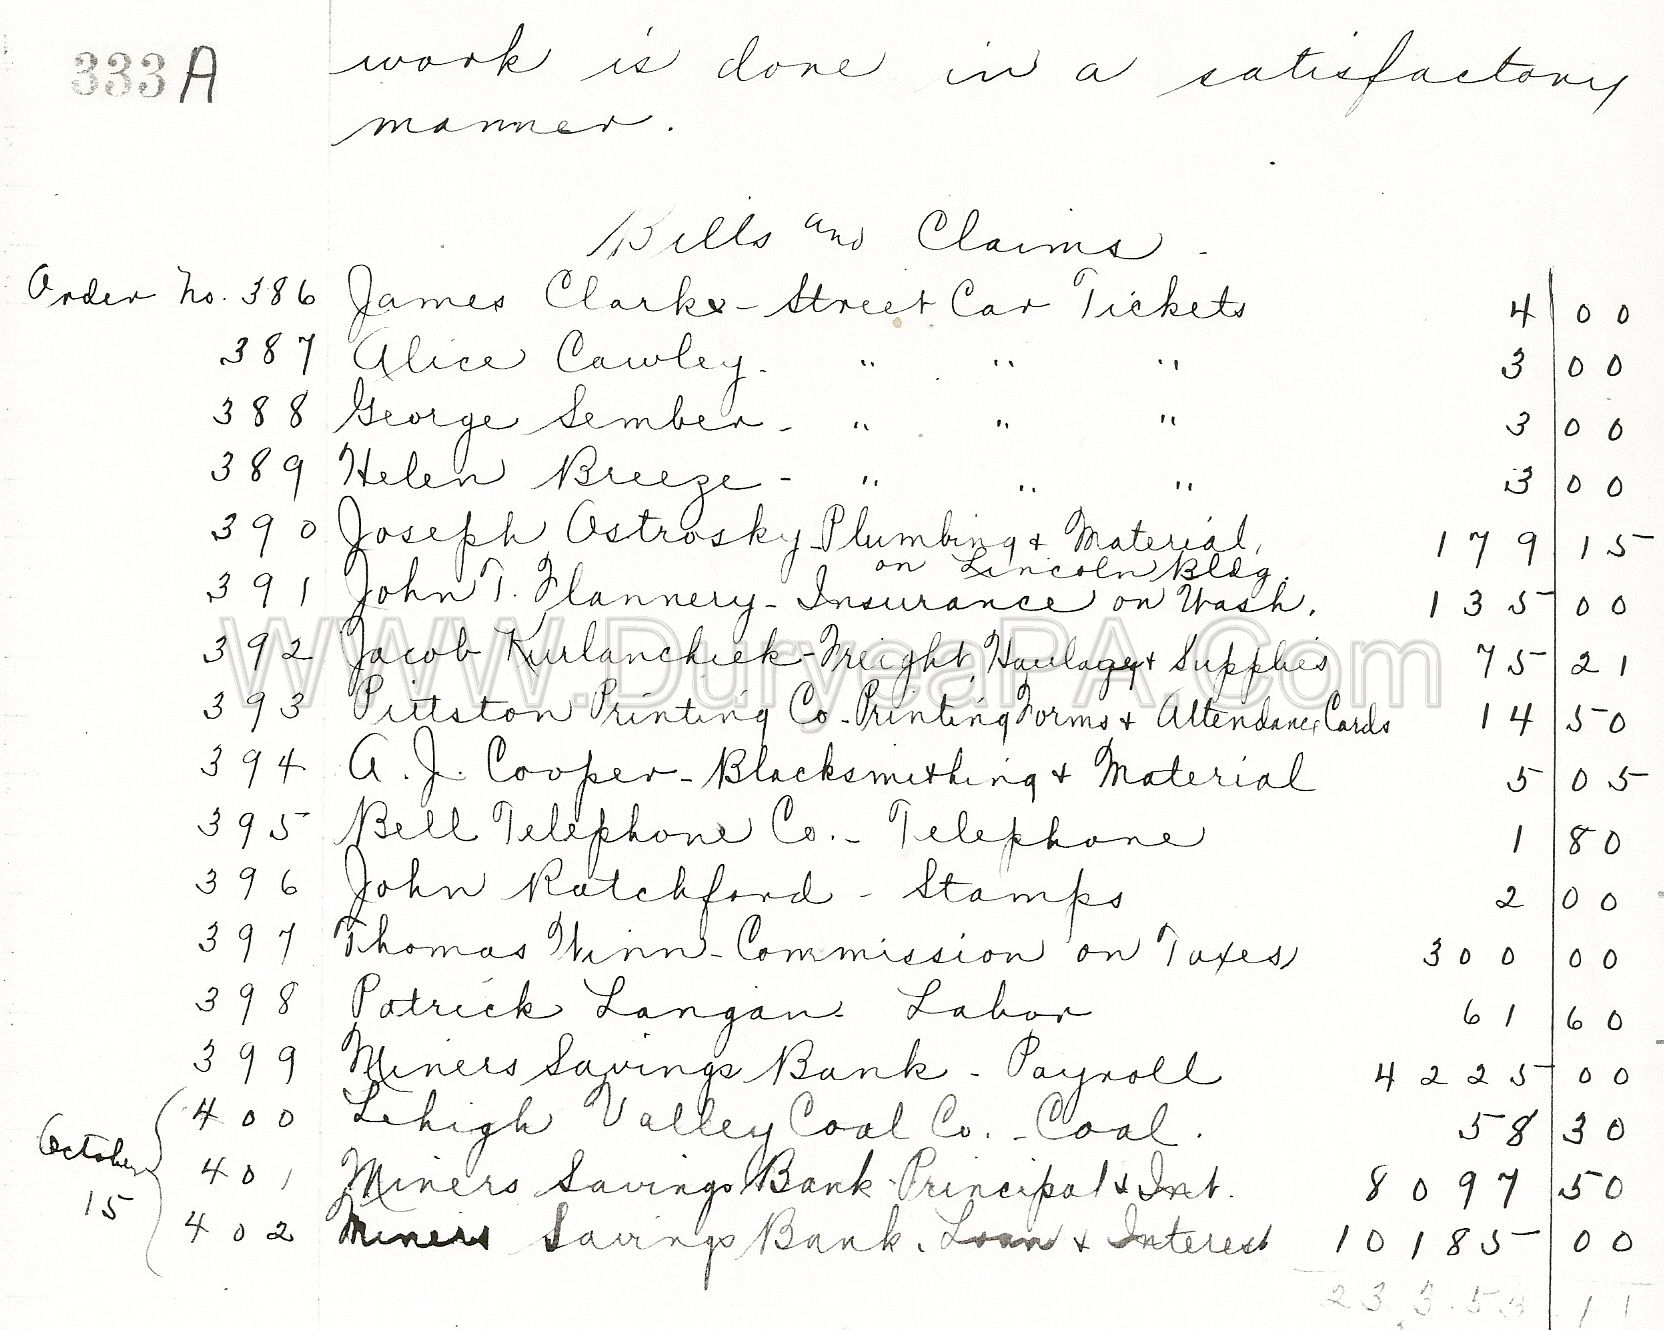 333A
work is done in a satisfactory
manner.
Bills and Claims -
Order No. 386 James Clarke - Street Car Tickets 4 00
387 Alice Cawley - " " " 3 00
388 George Sember - " " " 3 00
389 Helen Breeze - " " " 3 00
390 Joseph Ostrosky - Plumbing & Material, 179 15
on Lincoln Bldg.
391 John T. Flannery - Insurance on Wash. 135 00
392 Jacob Kurlanchick - Freight, Haulage & Supplies 75 21
WWW.DuryeaPA.Com
393 Pittston Printing Co. - Printing Forms & Attendance Cards 14 50
394 A. J. Cooper - Blacksmithing & Material 5 05
395 Bell Telephone Co. - Telephone 1 80
396 John Ratchford - Stamps 2 00
397 Thomas Winn - Commission on Taxes 300 00
398 Patrick Langan - Labor 61 60
399 Miners Savings Bank - Payroll 4225 00
400 Lehigh Valley Coal Co. - Coal. 58 30
October 15
401 Miners Savings Bank - Principal & Int. 8097 50
402 Miners Savings Bank. Loan & Interest 10185 00
11